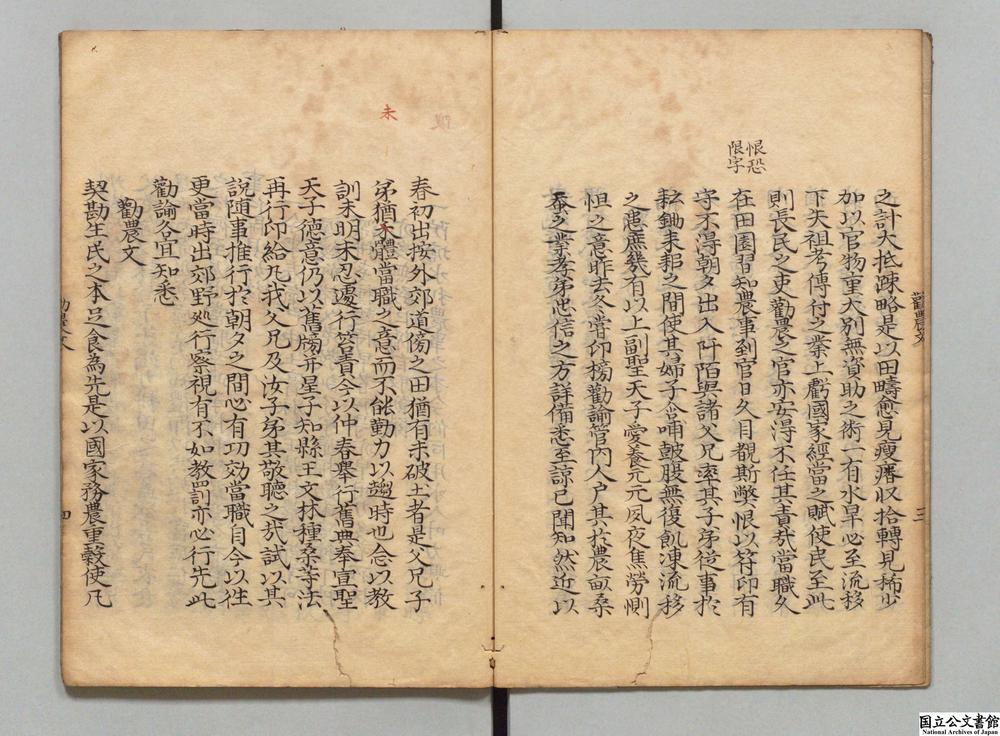 恨恐
限字
之計大抵疎略是以田疇愈見瘦瘠収拾轉見稀少
加以官物重大別無資助之術一有水旱必至流移
下失祖考傳付之業上虧國家經當之賦使民至此
則長民之吏勸農之官亦安得不任其責㢤當職久
在田園習知農事到官日久目覩斯弊恨以符印有
守不得朝夕出入阡陌與諸父兄率其子弟從事於
耘鋤耒耜之間使其婦子含哺皷腹無復飢凍流移
之患庶幾有以上副聖天子愛養元元夙夜焦勞惻
怛之意昨去冬嘗印榜勸諭管内人户其於農畆桑
蚕之業孝弟忠信之方詳備悉至諒已聞知然近以
勸農文
三
未
春初出按外郊道傍之田猶有未破土者是父兄子
弟猶未體當職之意而不能勤力以趨時也念以教
訓未明未忍遽行笞責今以仲春舉行舊典奉宣聖
天子德意仍以舊牓并星子知縣王文林種桑等法
再行印給凡我父兄及汝子弟其敬聽之㢤試以其
說隨事推行於朝夕之間必有功効當職自今以往
更當時出郊野廵行察視有不如教罰亦必行先此
勸諭各宜知悉
勸農文
契勘生民之本足食為先是以國家務農重穀使凡
勸農文
四
国立公文書館
National Archives of Japan